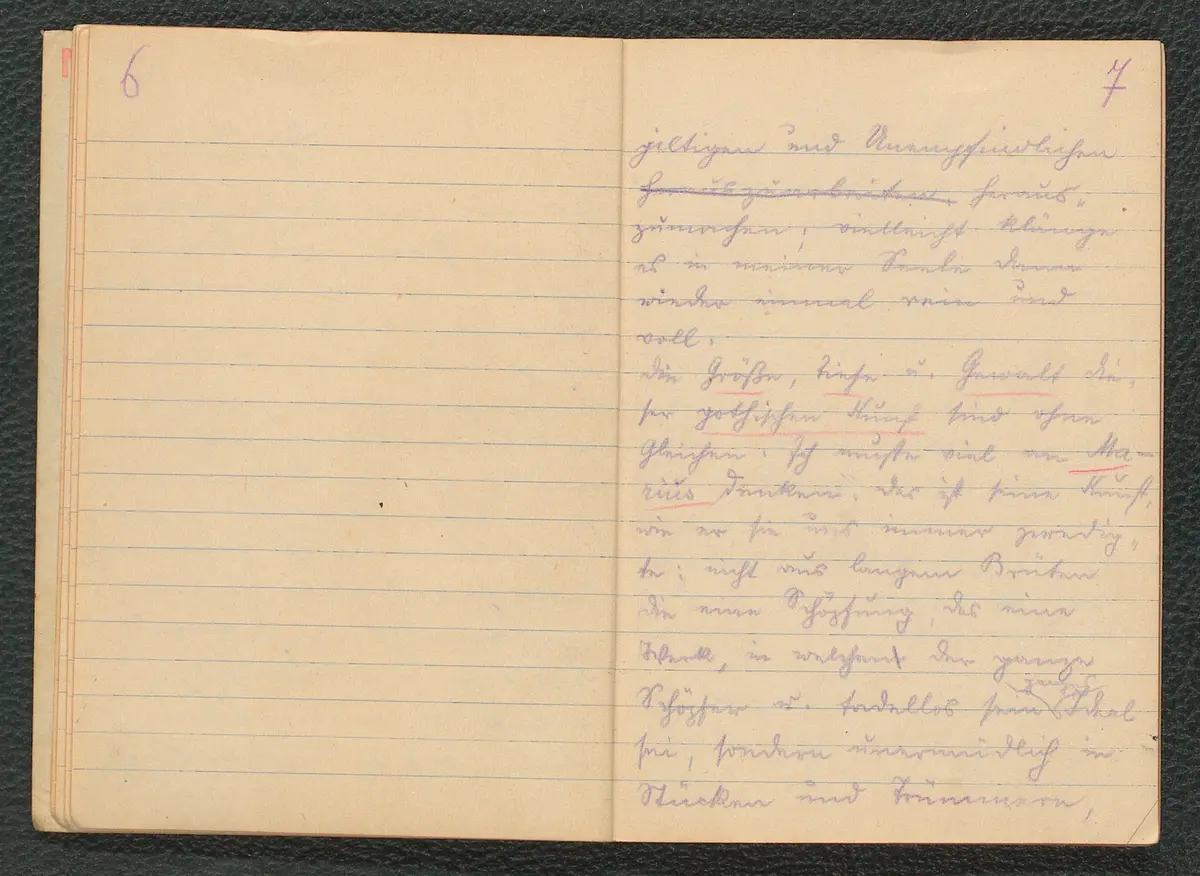 6
7
giltigen und Unempfindlichen
herauszuarbeiten, heraus„
zumachen; vielleicht klänge
es in meiner Seele dann
wieder einmal rein und
voll.
Die Größe, Tiefe u. Gewalt die„
ser gothischen Kunst sind ohne
Gleichen. Ich musste viel an Ma-
rius denken. Das ist seine Kunst,
wie er sie uns immer predig„
te: nicht aus langem Brüten
die eine Schöpfung, das eine
Werk, in welchem der ganze
Schöpfer u. tadellos sein ganzes Ideal
sei, sondern unermüdlich in
Stücken und Trümmern,